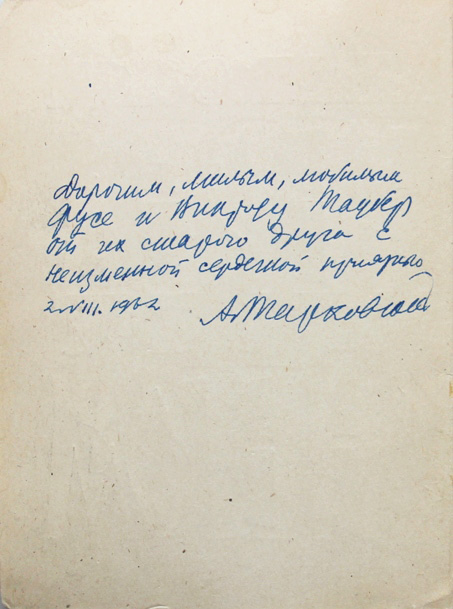 Дорогим, милым, любимым
Фусе и Виктору Таубер
от их старого друга с
неизменной сердечной приязнью
2.VIII.1962 А. Тарковский